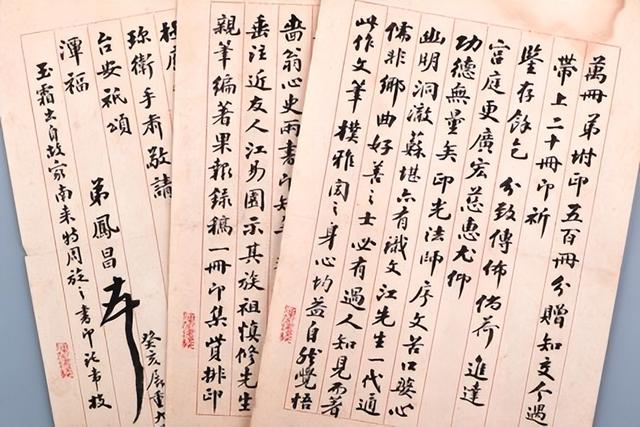 萬冊弟坿印五百冊分贈知交今遇
帶上二十冊印祈
鑒存餘乞 分致傳佈倘荷 進達
宮庭更廣宏慈惠尤仰
功德無量矣印光法師序文苦口婆心
幽明洞澈蘇堪亦有識文江先生一代通
儒非鄉曲好善之士必有過人知見而著
此作文筆樸雅閱之身心均益自能覺悟
嗇翁心史兩書印
垂注近友人江易園示其族祖慎修先生
親筆編著果報錄稿一冊印集貲排印
珎衛手肅敬請
台安祗頌
潭福
弟鳳昌
癸亥展重九
玉霜出自故家南来特周旋之書印託帶投